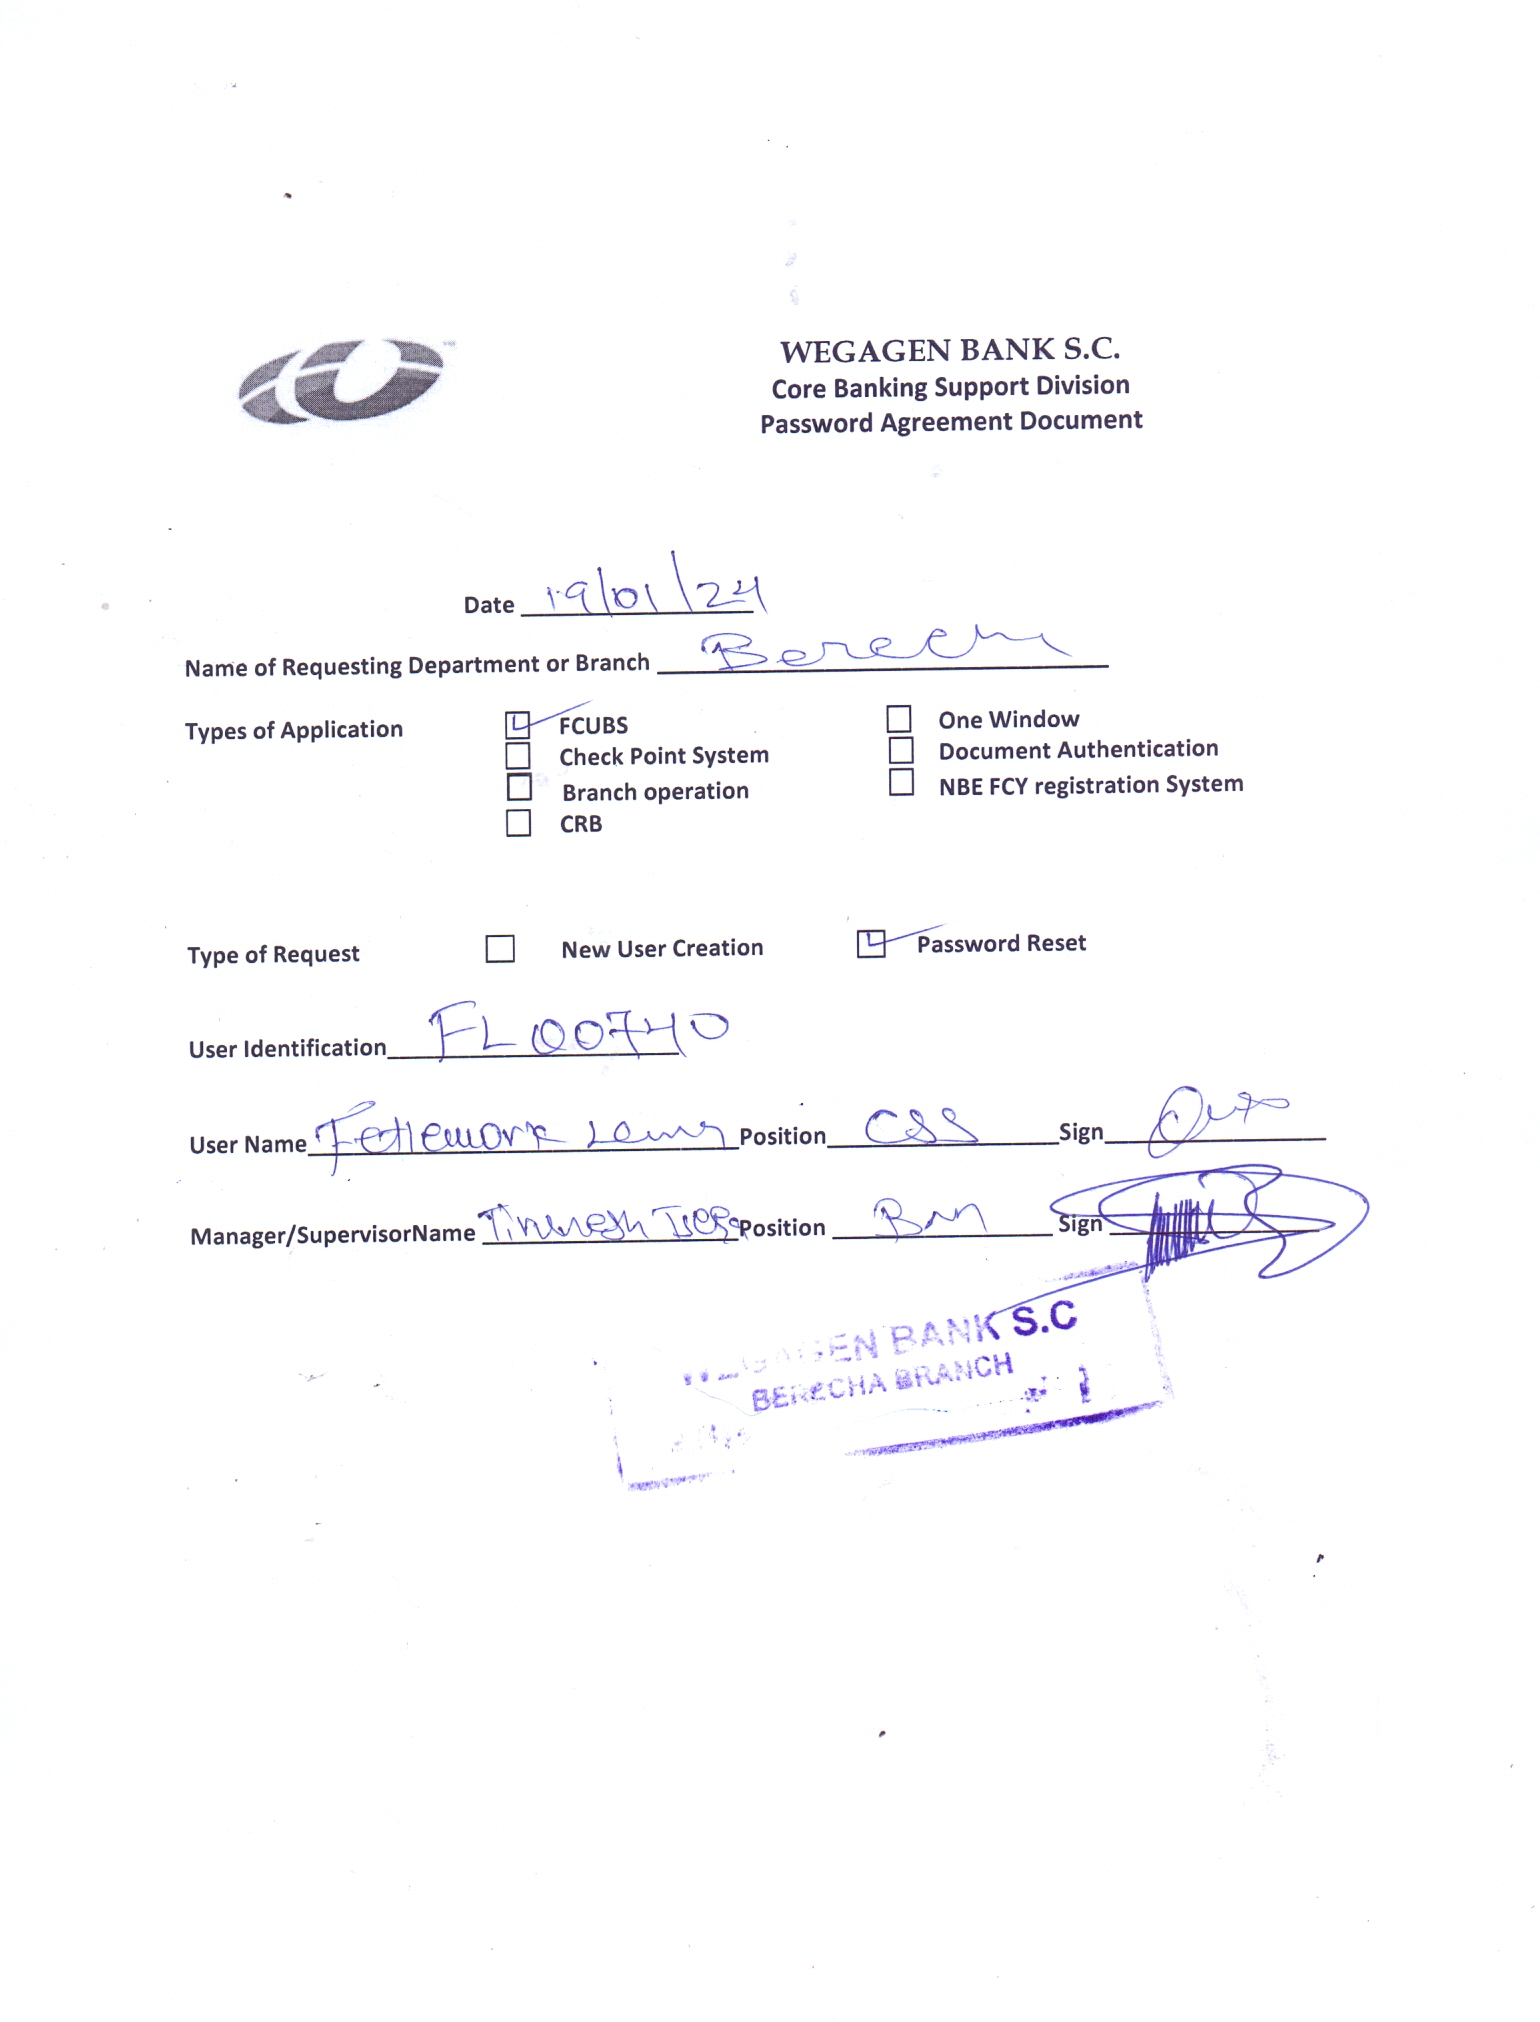 WEGAGEN BANK S.C.
Core Banking Support Division
Password Agreement Document
Date 19/01/24
Name of Requesting Department or Branch
Types of Application FCUBS One Window
Check Point System Document Authentication
Branch operation NBE FCY registration System
CRB
Type of Request New User Creation Password Reset
User Identification FL00740
User Name Fetlework Position CSS Sign
Manager/SupervisorName Position Sign
BANK S.C
BERECHA BRANCH